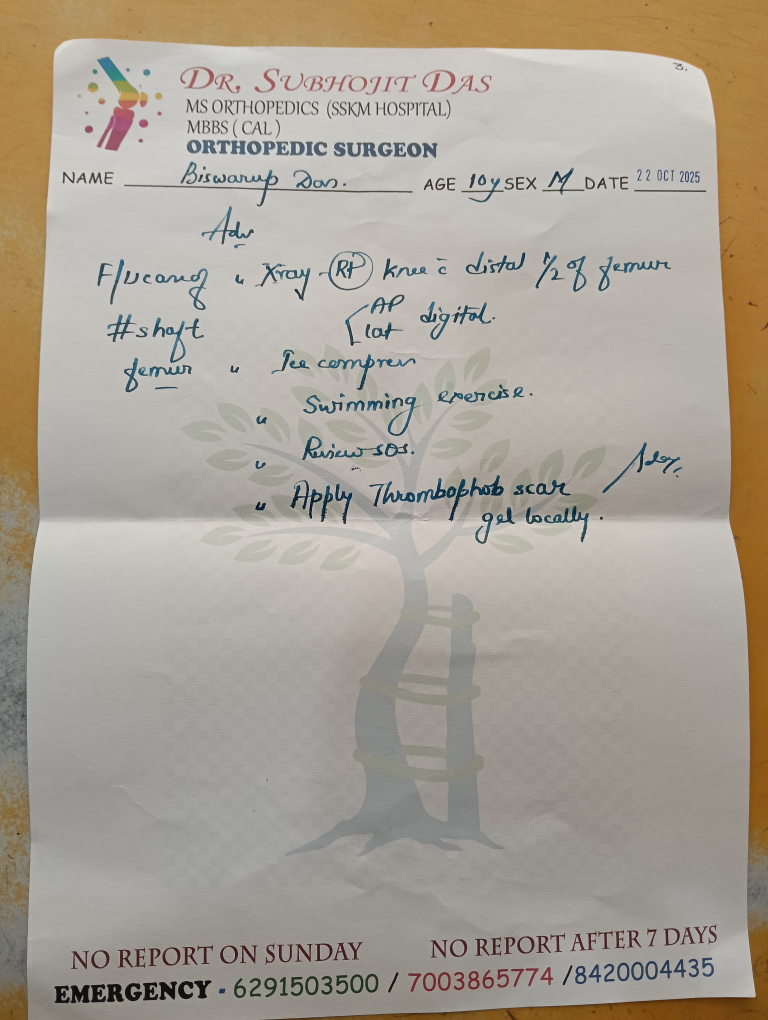 3.
DR. SUBHOJIT DAS
MS ORTHOPEDICS (SSKM HOSPITAL)
MBBS ( CAL )
ORTHOPEDIC SURGEON
NAME Biswarup Das. AGE 10y SEX M DATE 22 OCT 2025
Adv
F/U case of " Xray - Rt knee c̄ distal 1/2 of femur
#shaft
femur
AP
lat digital.
" Ice compress
" Swimming exercise.
" Review SOS.
" Apply Thrombophob scar
gel locally.
NO REPORT ON SUNDAY
NO REPORT AFTER 7 DAYS
EMERGENCY - 6291503500 / 7003865774 /8420004435